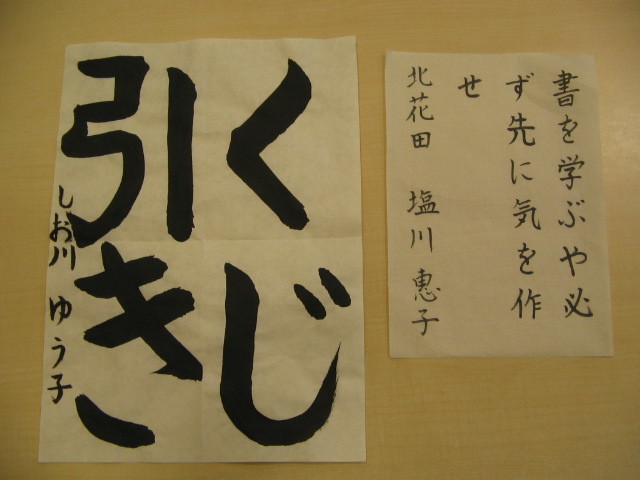 くじ
引き
しお川 ゆう子
書を学ぶや必
ず先に気を作
せ
北花田 塩川 惠子